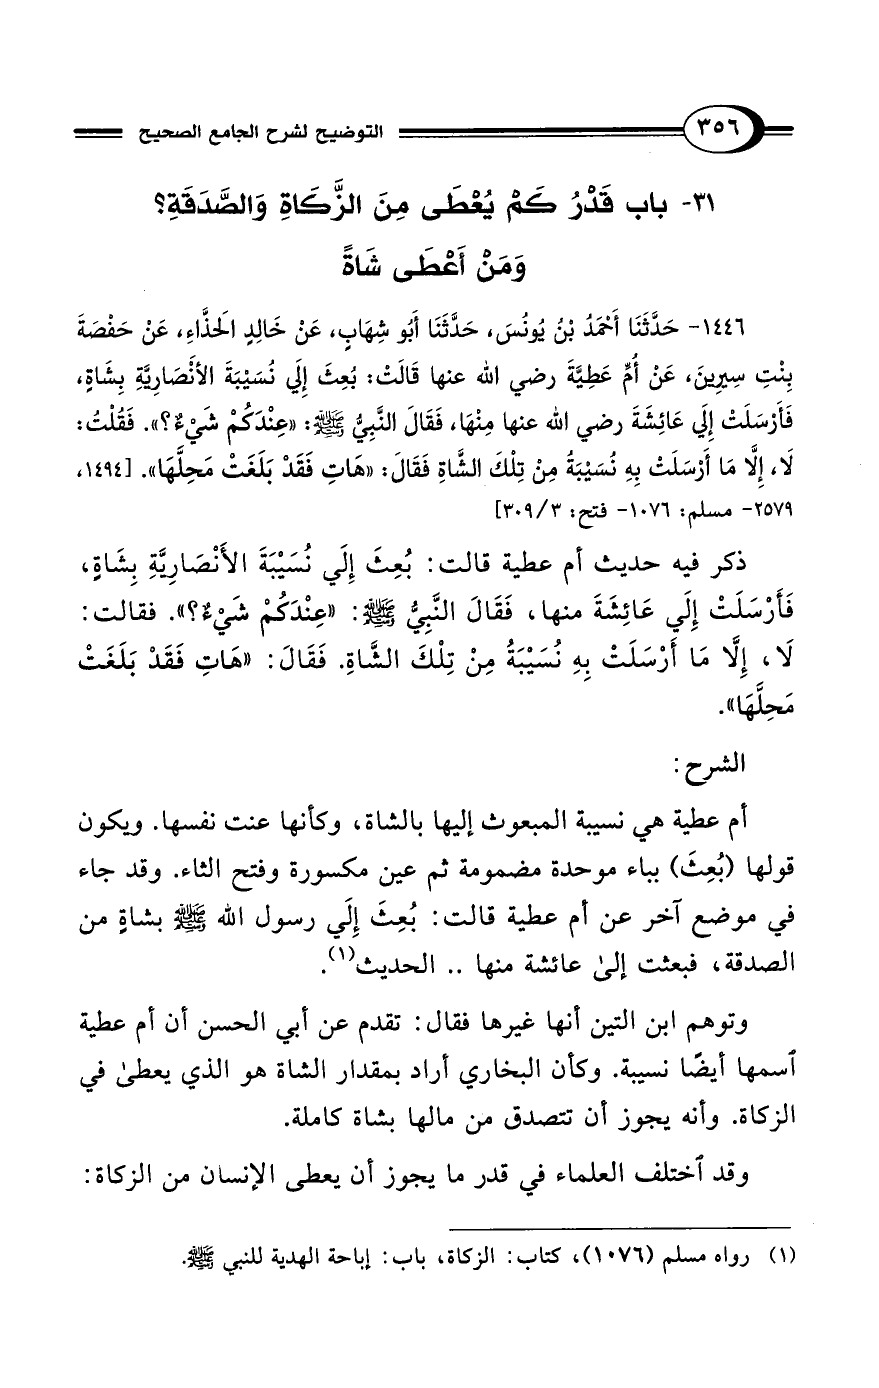 ٣٥٦ التوضيح لشرح الجامع الصحيح
٣١- باب قَدْرُ كَمْ يُعْطَى مِنَ الزَّكَاةِ وَالصَّدَقَةِ؟
وَمَنْ أَعْطَى شَاةً
١٤٤٦- حَدَّثَنَا أَحْمَدُ بْنُ يُونُسَ، حَدَّثَنَا أَبُو شِهَابٍ، عَنْ خَالِدٍ الَحذَّاءِ، عَنْ حَفْصَةَ
بِنْتِ سِيرِينَ، عَنْ أُمِّ عَطِيَّةَ رضي الله عنها قَالَتْ: بُعِثَ إِلَي نُسَيْبَةَ الأنْصَارِيَّةِ بِشَاةٍ،
فَأَرْسَلَتْ إِلَي عَائِشَةَ رضي الله عنها مِنْهَا، فَقَالَ النَّبِيُّ ﷺ: «عِنْدَكُمْ شَيْءٌ؟». فَقُلْتُ:
لَا، إِلَّا مَا أَرْسَلَتْ بِهِ نُسَيْبَةُ مِنْ تِلْكَ الشَّاةِ فَقَالَ: «هَاتِ فَقَدْ بَلَغَتْ مَحِلَّهَا». [١٤٩٤،
٢٥٧٩- مسلم: ١٠٧٦- فتح: ٣٠٩/٣]
ذكر فيه حديث أم عطية قالت: بُعِثَ إِلَي نُسَيْبَةَ الأَنْصَارِيَّةِ بِشَاةٍ،
فَأَرْسَلَتْ إِلَي عَائِشَةَ منها، فَقَالَ النَّبِيُّ ﷺ: «عِنْدَكُمْ شَيْءٌ؟». فقالت:
لَا، إِلَّا مَا أَرْسَلَتْ بِهِ نُسَيْبَةُ مِنْ تِلْكَ الشَّاةِ. فَقَالَ: «هَاتِ فَقَدْ بَلَغَتْ
مَحِلَّهَا».
الشرح:
أم عطية هي نسيبة المبعوث إليها بالشاة، وكأنها عنت نفسها. ويكون
قولها (بُعِثَ) بباء موحدة مضمومة ثم عين مكسورة وفتح الثاء. وقد جاء
في موضع آخر عن أم عطية قالت: بُعِثَ إِلَي رسول الله ﷺ بشاةٍ من
الصدقة، فبعثت إلىٰ عائشة منها .. الحديث(١).
وتوهم ابن التين أنها غيرها فقال: تقدم عن أبي الحسن أن أم عطية
ٱسمها أيضًا نسيبة. وكأن البخاري أراد بمقدار الشاة هو الذي يعطىٰ في
الزكاة. وأنه يجوز أن تتصدق من مالها بشاة كاملة.
وقد ٱختلف العلماء في قدر ما يجوز أن يعطى الإنسان من الزكاة:
(١) رواه مسلم (١٠٧٦)، كتاب: الزكاة، باب: إباحة الهدية للنبي ﷺ.